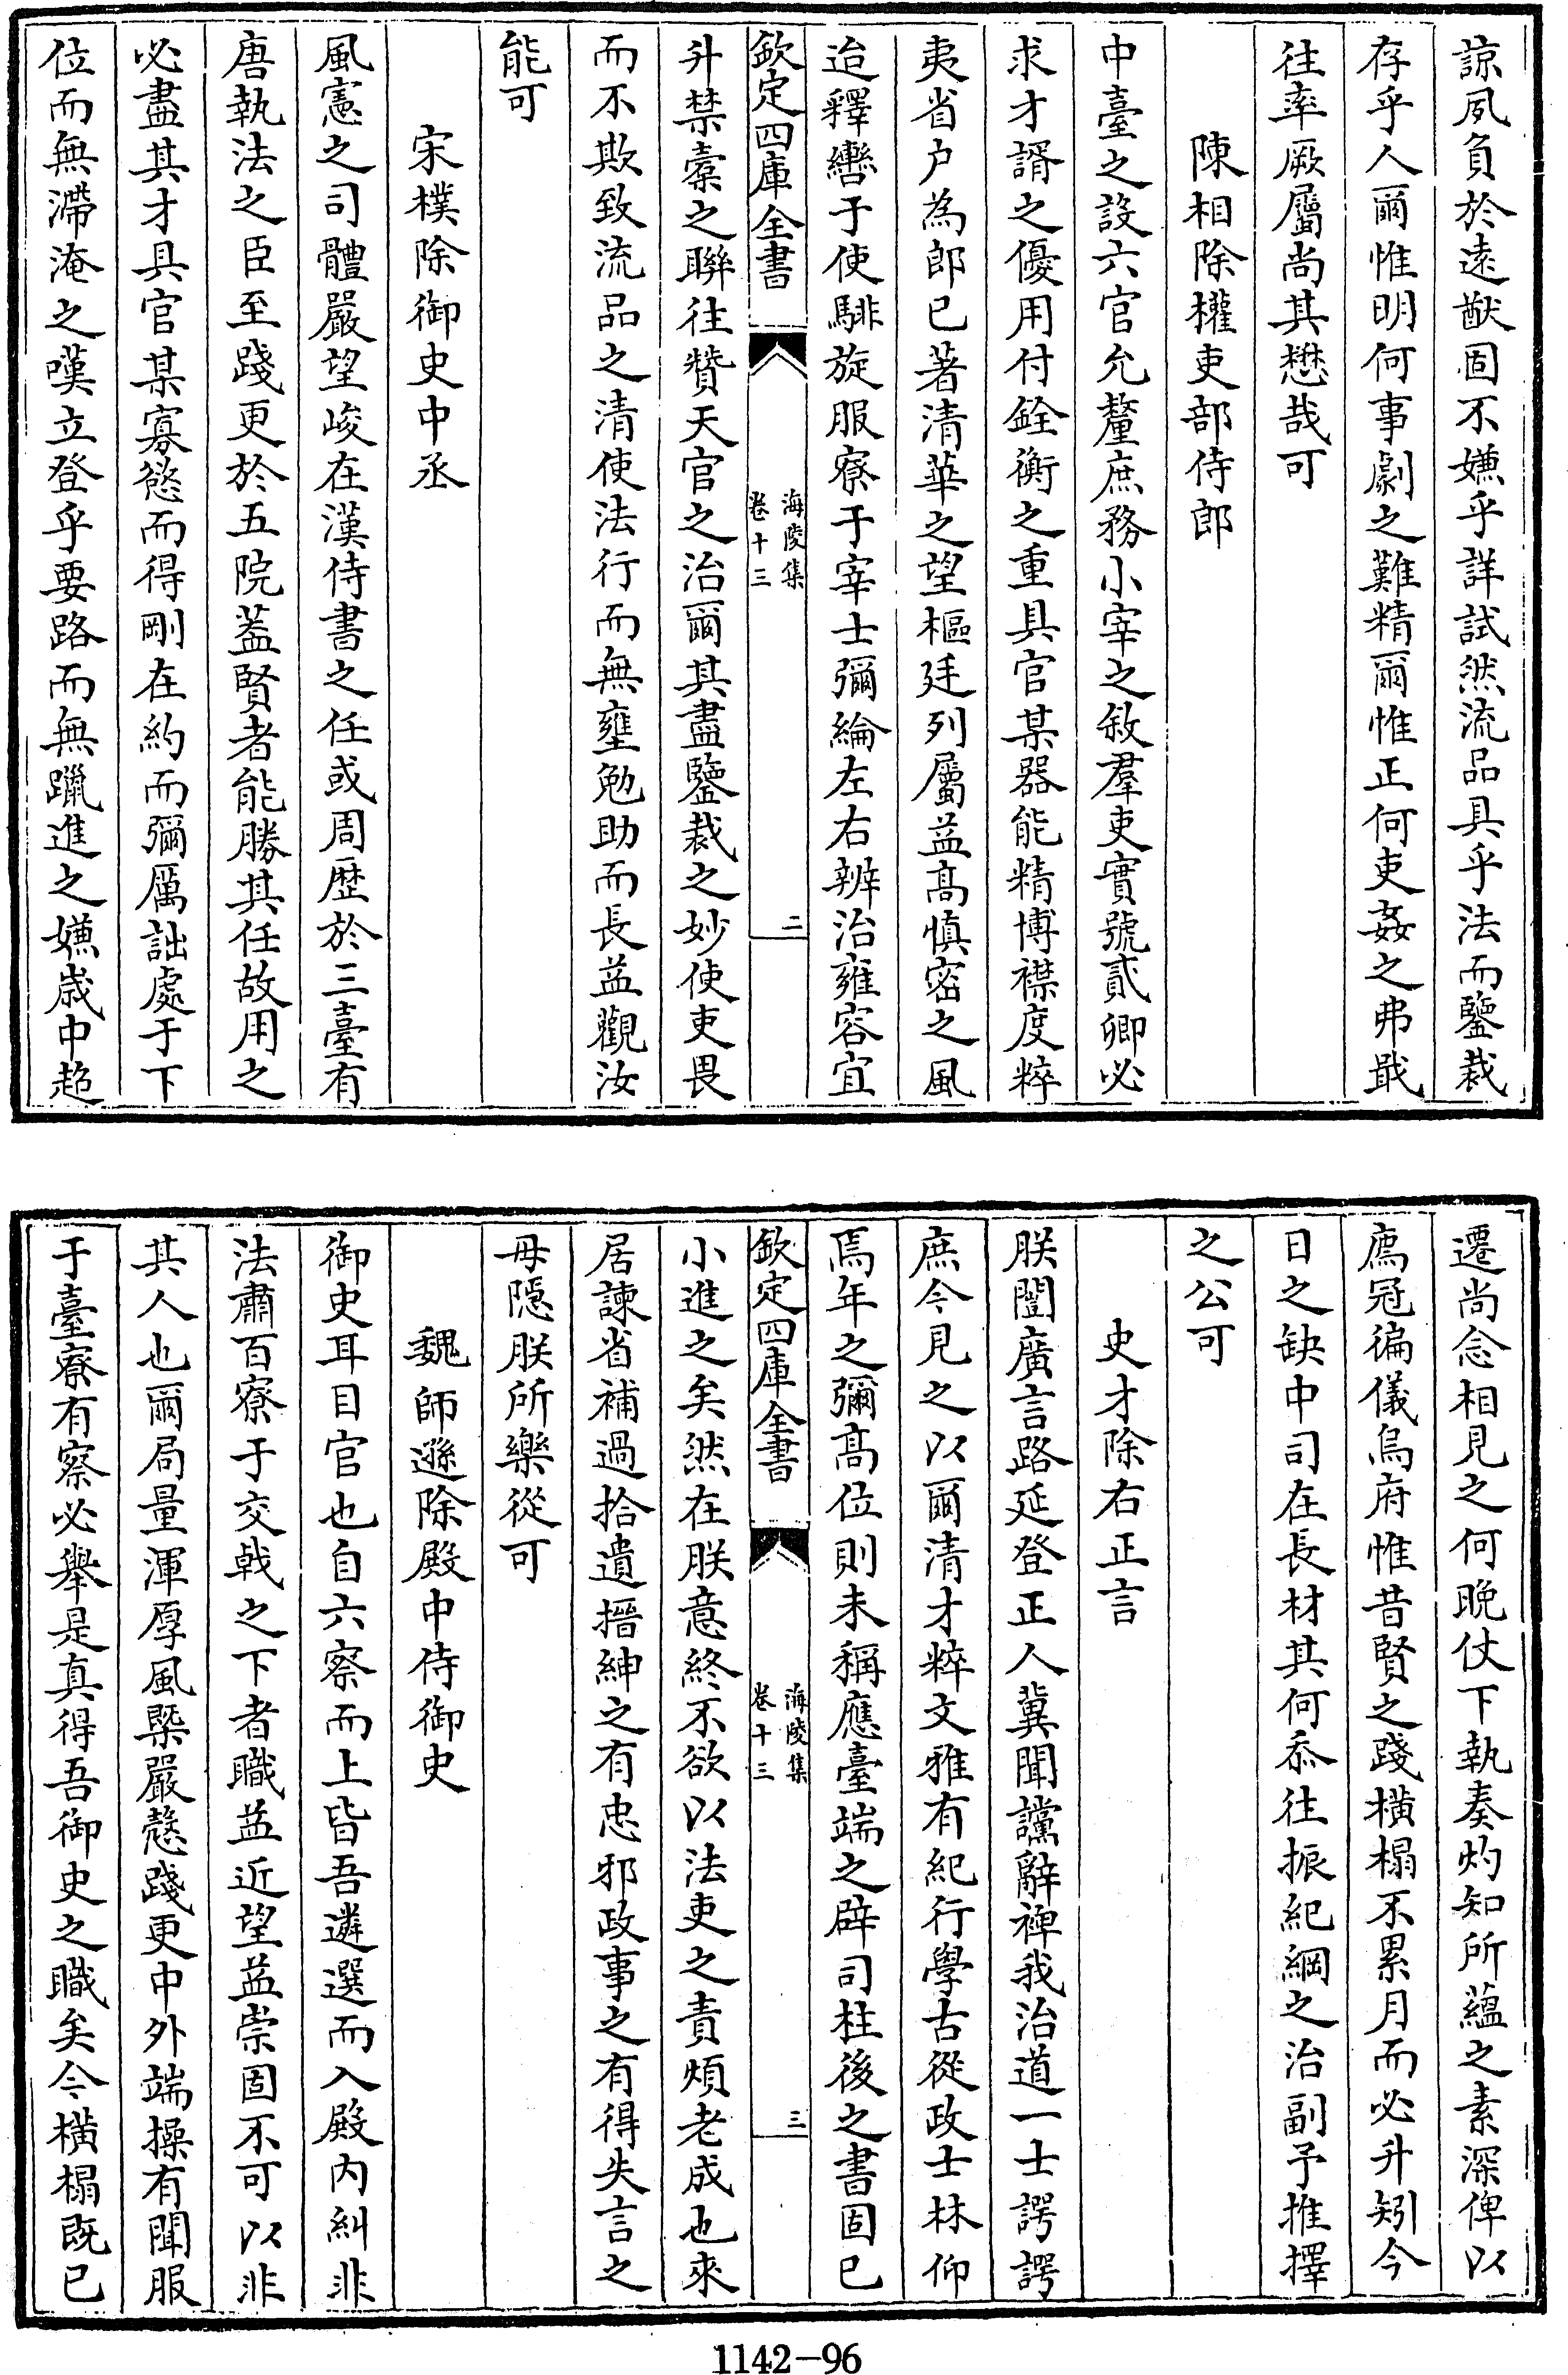 諒夙負於遠猷固不嫌乎詳試然流品具乎法而鑒裁
存乎人爾惟明何事劇之難精爾惟正何吏姦之弗戢
往率厥屬尚其懋哉可
陳相除權吏部侍郎
中臺之設六官允釐庶務小宰之敘羣吏實號貳卿必
求才諝之優用付銓衡之重具官某器能精博襟度粹
夷省户為郎已著清華之望樞廷列屬益髙慎密之風
迨釋轡于使騑旋服寮于宰士彌綸左右辨治雍容宜
欽定四庫全書
海陵集
卷十三
二
升禁橐之聯往贊天官之治爾其盡鑒裁之妙使吏畏
而不欺致流品之清使法行而無壅勉助而長益觀汝
能可
宋樸除御史中丞
風憲之司體嚴望峻在漢侍書之任或周歴於三臺有
唐執法之臣至踐更於五院蓋賢者能勝其任故用之
必盡其才具官某寡慾而得剛在約而彌厲詘處于下
位而無滯淹之嘆立登乎要路而無躐進之嫌嵗中超
遷尚念相見之何晚仗下執奏灼知所蘊之素深俾以
廌冠徧儀烏府惟昔賢之踐橫榻不累月而必升矧今
日之缺中司在長材其何忝往振紀綱之治副予推擇
之公可
史才除右正言
朕闓廣言路延登正人冀聞讜辭裨我治道一士諤諤
庶今見之以爾清才粹文雅有紀行學古從政士林仰
焉年之彌髙位則未稱應臺端之辟司柱後之書固已
欽定四庫全書
海陵集
卷十三
三
小進之矣然在朕意終不欲以法吏之責煩老成也來
居諫省補過拾遺搢紳之有忠邪政事之有得失言之
毋隱朕所樂從可
魏師遜除殿中侍御史
御史耳目官也自六察而上皆吾遴選而入殿内糾非
法肅百寮于交戟之下者職益近望益崇固不可以非
其人也爾局量渾厚風槩嚴慤踐更中外端操有聞服
于臺寮有察必舉是真得吾御史之職矣今橫榻既已
1142-96